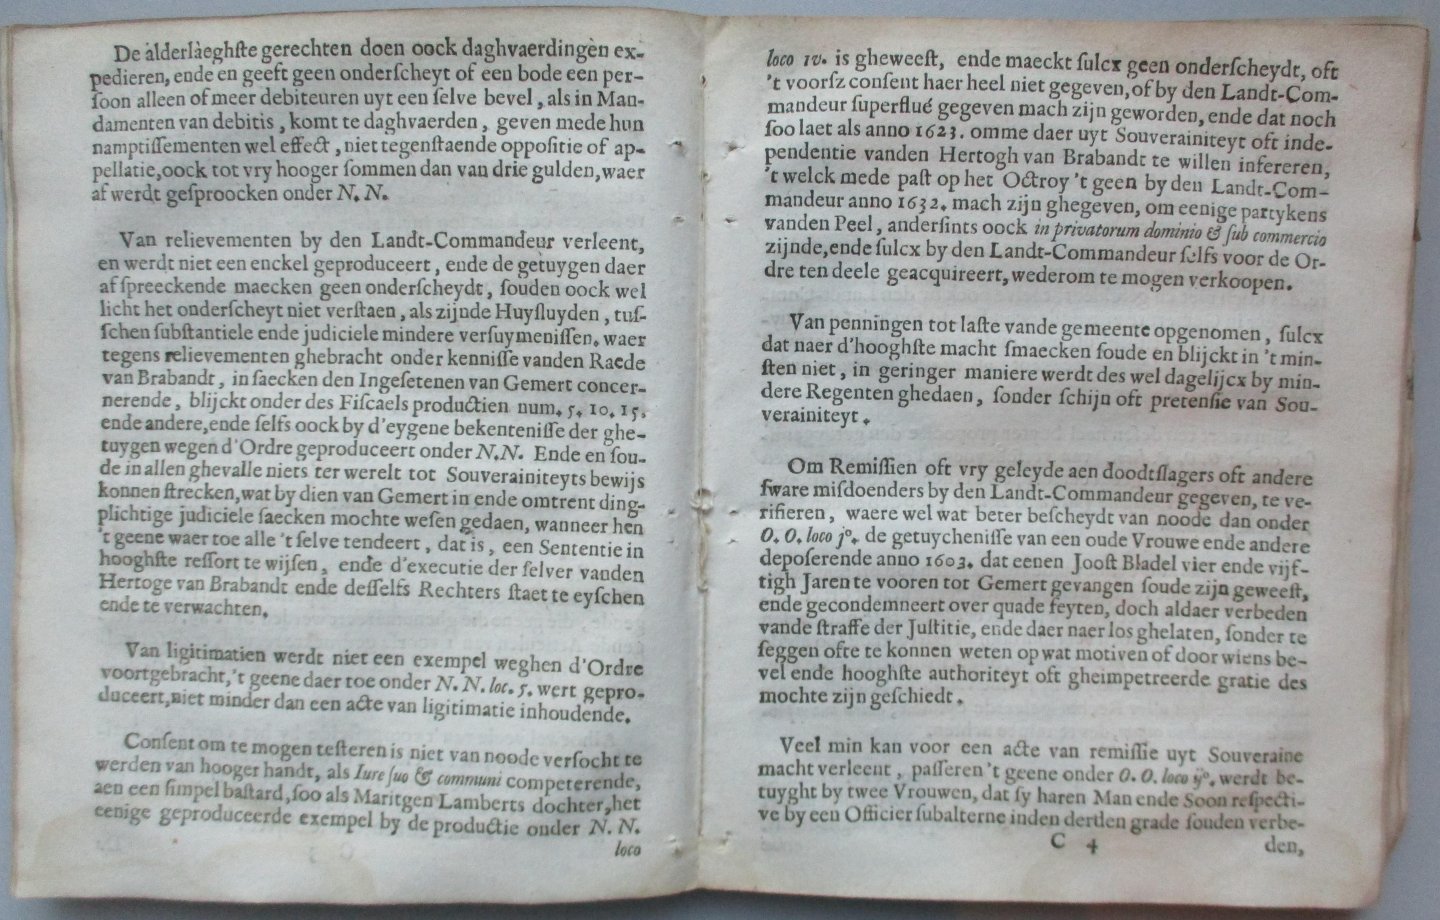 De alderlaeghſte gerechten doen oock daghvaerdingen ex-
pedieren, ende en geeft geen onderſcheyt of een bode een per-
ſoon alleen of meer debiteuren uyt een ſelve bevel, als in Man-
damenten van debitis, komt te daghvaerden, geven mede hun
namptiſſementen wel effect, niet tegenſtaende oppoſitie of ap-
pellatie, oock tot vry hooger ſommen dan van drie gulden, waer
af werdt geſproocken onder N. N.
Van relievementen by den Landt-Commandeur verleent,
en werdt niet een enckel geproduceert, ende de getuygen daer
af ſpreeckende maecken geen onderſcheydt, ſouden oock wel
licht het onderſcheyt niet verſtaen, als zijnde Huyſluyden, tuſ-
ſchen ſubſtantiele ende judiciele mindere verſuymeniſſen. waer
tegens relievementen ghebracht onder kenniſſe vanden Raede
van Brabandt, in ſaecken den Ingeſetenen van Gemert concer-
nerende, blijckt onder des Fiſcaels productien num. 5. 10. 15.
ende andere, ende ſelfs oock by d'eygene bekenteniſſe der ghe-
tuygen wegen d'Ordre geproduceert onder N.N. Ende en ſou-
de in allen ghevalle niets ter werelt tot Souverainiteyts bewijs
konnen ſtrecken, wat by dien van Gemert in ende omtrent ding-
plichtige judiciele ſaecken mochte weſen gedaen, wanneer hen
't geene waer toe alle 't ſelve tendeert, dat is, een Sententie in
hooghſte reſſort te wijſen, ende d'executie der ſelver vanden
Hertoge van Brabandt ende deſſelfs Rechters ſtaet te eyſchen
ende te verwachten.
Van ligitimatien werdt niet een exempel weghen d'Ordre
voortgebracht, 't geene daer toe onder N. N. loc. 5. wert gepro-
duceert, niet minder dan een acte van ligitimatie inhoudende.
Conſent om te mogen teſteren is niet van noode verſocht te
werden van hooger handt, als Iure ſuo & communi competerende,
aen een ſimpel baſtard, ſoo als Maritgen Lamberts dochter, het
eenige geproduceerde exempel by de productie onder N. N.
loco
loco iv. is gheweeſt, ende maeckt ſulcx geen onderſcheydt, oft
't voorſz conſent haer heel niet gegeven, of by den Landt-Com-
mandeur ſuperflué gegeven mach zijn geworden, ende dat noch
ſoo laet als anno 1623. omme daer uyt Souverainiteyt oft inde-
pendentie vanden Hertogh van Brabandt te willen infereren,
't welck mede paſt op het Octroy 't geen by den Landt-Com-
mandeur anno 1632. mach zijn ghegeven, om eenige partykens
vanden Peel, anderſints oock in privatorum dominio & ſub commercio
zijnde, ende ſulcx by den Landt-Commandeur ſelfs voor de Or-
dre ten deele geacquireert, wederom te mogen verkoopen.
Van penningen tot laſte vande gemeente opgenomen, ſulcx
dat naer d'hooghſte macht ſmaecken ſoude en blijckt in 't min-
ſten niet, in geringer maniere werdt des wel dagelijcx by min-
dere Regenten ghedaen, ſonder ſchijn oft pretenſie van Sou-
verainiteyt.
Om Remiſſien oft vry geleyde aen doodtſlagers oft andere
ſware miſdoenders by den Landt-Commandeur gegeven, te ve-
rifieren, waere wel wat beter beſcheydt van noode dan onder
O. O. loco jº. de getuycheniſſe van een oude Vrouwe ende andere
depoſerende anno 1603. dat eenen Jooſt Bladel vier ende vijf-
tigh Jaren te vooren tot Gemert gevangen ſoude zijn geweeſt,
ende gecondemneert over quade feyten, doch aldaer verbeden
vande ſtraffe der Juſtitie, ende daer naer los ghelaten, ſonder te
ſeggen ofte te konnen weten op wat motiven of door wiens be-
vel ende hooghſte authoriteyt oft gheimpetreerde gratie des
mochte zijn geſchiedt.
Veel min kan voor een acte van remiſſie uyt Souveraine
macht verleent, paſſeren 't geene onder O. O. loco ijº. werdt be-
tuyght by twee Vrouwen, dat ſy haren Man ende Soon reſpecti-
ve by een Officier ſubalterne inden dertlen grade ſouden verbe-
C 4 den,